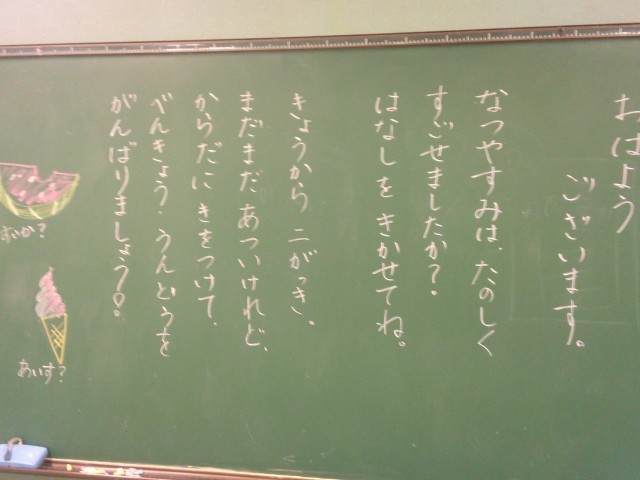 おはよう
ございます。
なつやすみは、たのしく
すごせましたか?
はなしをきかせてね。
きょうから 二がっき。
まだまだ あついけれど、
からだに きをつけて、
べんきょう・うんどうを
がんばりましょう!
すいか?
あいす?